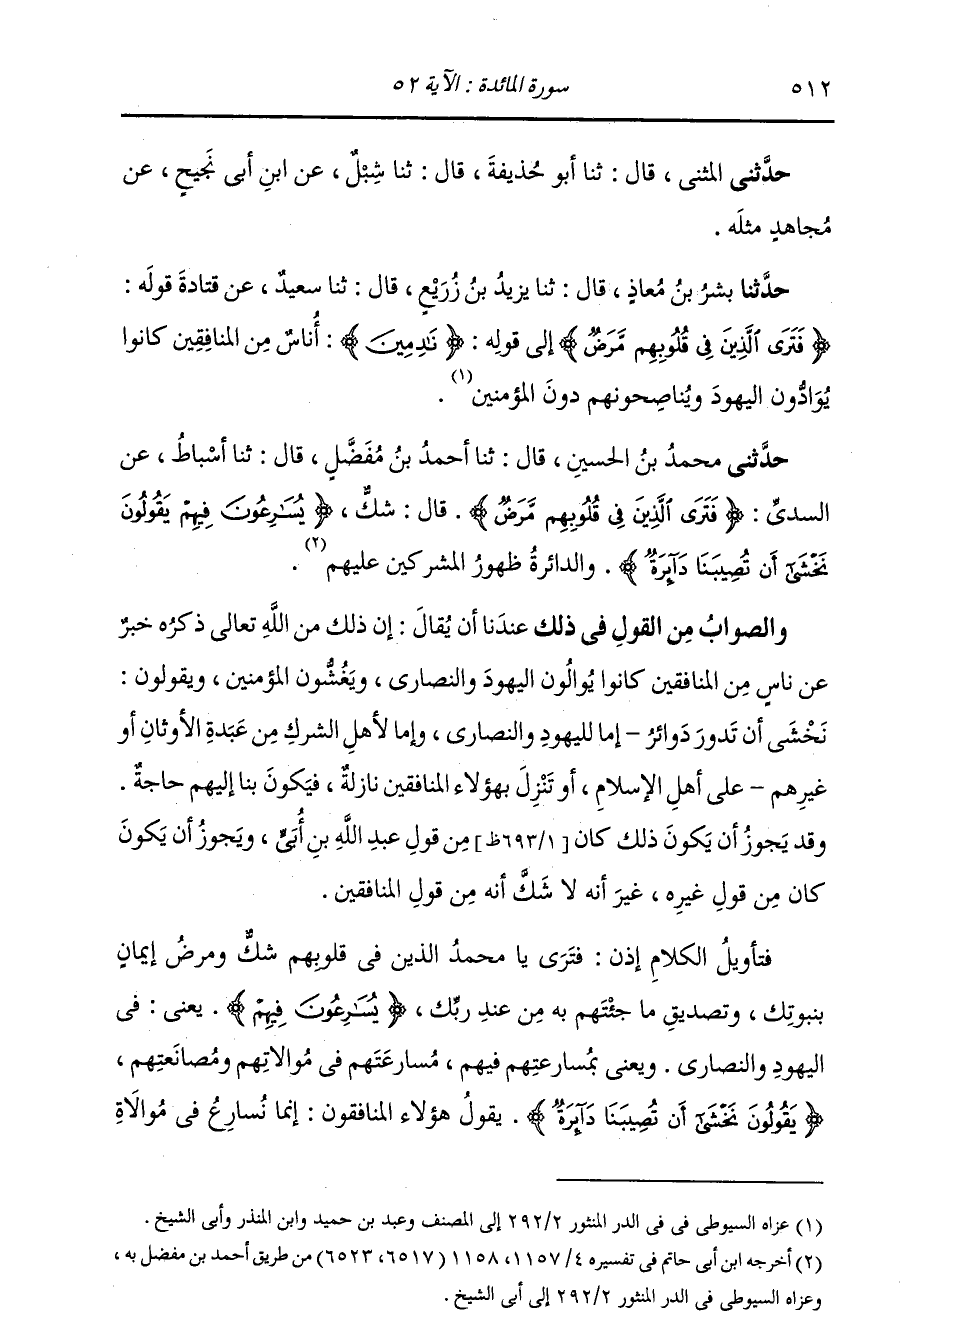 ٥١٢ سورة المائدة : الآية ٥٢
حدَّثنى المثنى ، قال : ثنا أبو حُذيفةَ ، قال : ثنا شِبْلٌ ، عن ابنِ أبى نَجيحٍ ، عن
مُجاهدٍ مثلَه .
حدَّثنا بشرُ بنُ مُعاذٍ ، قال : ثنا يزيدُ بنُ زُرَيْعٍ ، قال : ثنا سعيدٌ ، عن قتادةَ قولَه :
﴿ فَتَرَى ٱلَّذِينَ فِى قُلُوبِهِم مَّرَضٌ ﴾ إلى قولِه : ﴿ نَـٰدِمِينَ ﴾ : أُناسٌ مِن المنافِقِين كانوا
يُوَادُّون اليهودَ ويُناصِحونهم دونَ المؤمنين(١) .
حدَّثنى محمدُ بنُ الحسينِ ، قال : ثنا أحمدُ بنُ مُفَضَّلٍ ، قال : ثنا أسْباطُ ، عن
السدىِّ : ﴿ فَتَرَى ٱلَّذِينَ فِى قُلُوبِهِم مَّرَضٌ ﴾ . قال : شكٌّ ، ﴿ يُسَـٰرِعُونَ فِيهِمْ يَقُولُونَ
نَخْشَىٰٓ أَن تُصِيبَنَا دَآئِرَةٌ ﴾ . والدائرةُ ظهورُ المشركين عليهم(٢) .
والصوابُ مِن القولِ فى ذلك عندَنا أن يُقالَ : إن ذلك من اللَّهِ تعالى ذكرُه خبرٌ
عن ناسٍ مِن المنافقين كانوا يُوالُون اليهودَ والنصارى ، ويَغُشُّون المؤمنين ، ويقولون :
نَخْشَى أن تَدورَ دَوائرُ – إما لليهودِ والنصارى ، وإما لأهلِ الشركِ مِن عَبَدةِ الأوثانِ أو
غيرِهم – على أهلِ الإسلامِ ، أو تَنْزِلَ بهؤلاء المنافقين نازلةٌ ، فيَكونَ بنا إليهم حاجةٌ .
وقد يَجوزُ أن يَكونَ ذلك كان [٦٩٣/١ظ] مِن قولِ عبدِ اللَّهِ بنِ أُبَىٍّ ، ويَجوزُ أن يَكونَ
كان مِن قولِ غيرِه ، غيرَ أنه لا شَكَّ أنه مِن قولِ المنافقين .
فتأويلُ الكلامِ إذن : فتَرَى يا محمدُ الذين فى قلوبِهم شكٌّ ومرضُ إيمانٍ
بنبوتِك ، وتصديقِ ما جئْتَهم به مِن عندِ ربِّك ، ﴿ يُسَـٰرِعُونَ فِيهِمْ ﴾ . يعنى : فى
اليهودِ والنصارى . ويعنى بمُسارعتِهم فيهم ، مُسارعَتَهم فى مُوالاتِهم ومُصانَعتِهم ،
﴿ يَقُولُونَ نَخْشَىٰٓ أَن تُصِيبَنَا دَآئِرَةٌ ﴾ . يقولُ هؤلاء المنافقون : إنما نُسارِعُ فى مُوالاةِ
(١) عزاه السيوطى فى فى الدر المنثور ٢٩٢/٢ إلى المصنف وعبد بن حميد وابن المنذر وأبى الشيخ .
(٢) أخرجه ابن أبى حاتم فى تفسيره ٤/ ١١٥٧، ١١٥٨ (٦٥١٧، ٦٥٢٣) من طريق أحمد بن مفضل به ،
وعزاه السيوطى فى الدر المنثور ٢٩٢/٢ إلى أبى الشيخ .